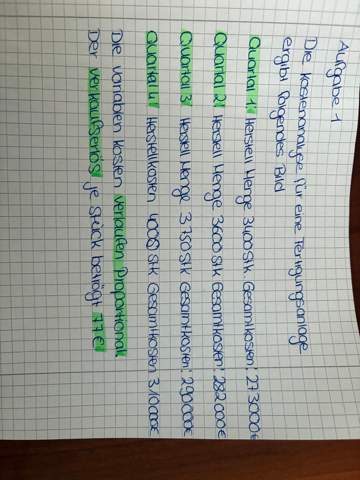 Aufgabe 1
Die Kostenanalyse für eine Fertigungsanlage
ergibt folgendes Bild
Quartal 1: Herstell Menge 3400 Stk. Gesamtkosten: 273000€
Quartal 2: Herstell Menge 3600 Stk Gesamtkosten: 282000€
Quartal 3: Herstell Menge 3750 Stk Gesamtkosten: 290000€
Quartal 4: Herstellkosten 4000 Stk Gesamtkosten 3,10000€
Die variablen Kosten verlaufen proportional.
Der Verkaufserlös je Stück beträgt 77€